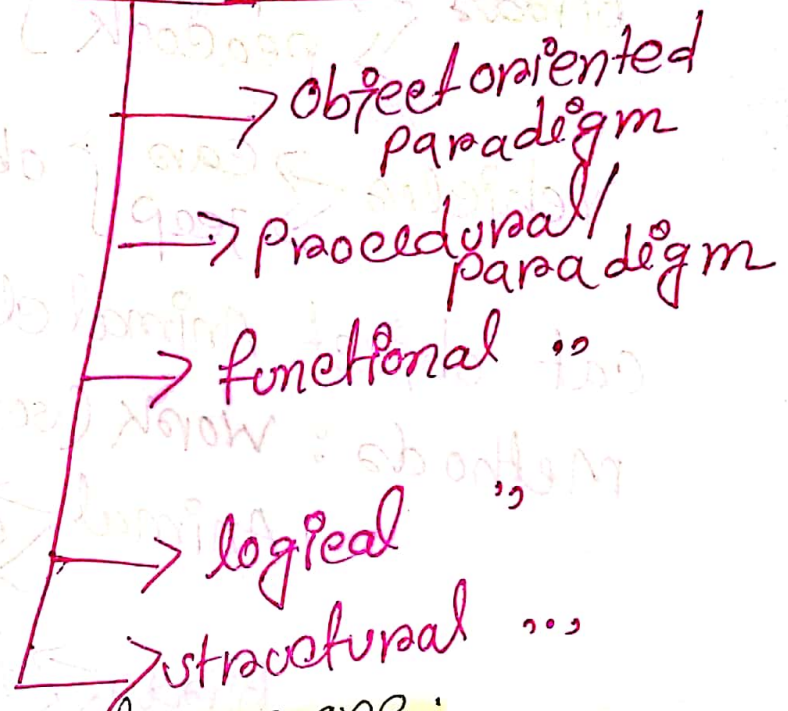 Object oriented
paradigm
Procedural
paradigm
functional ,,
logical ,,
structural ,,,